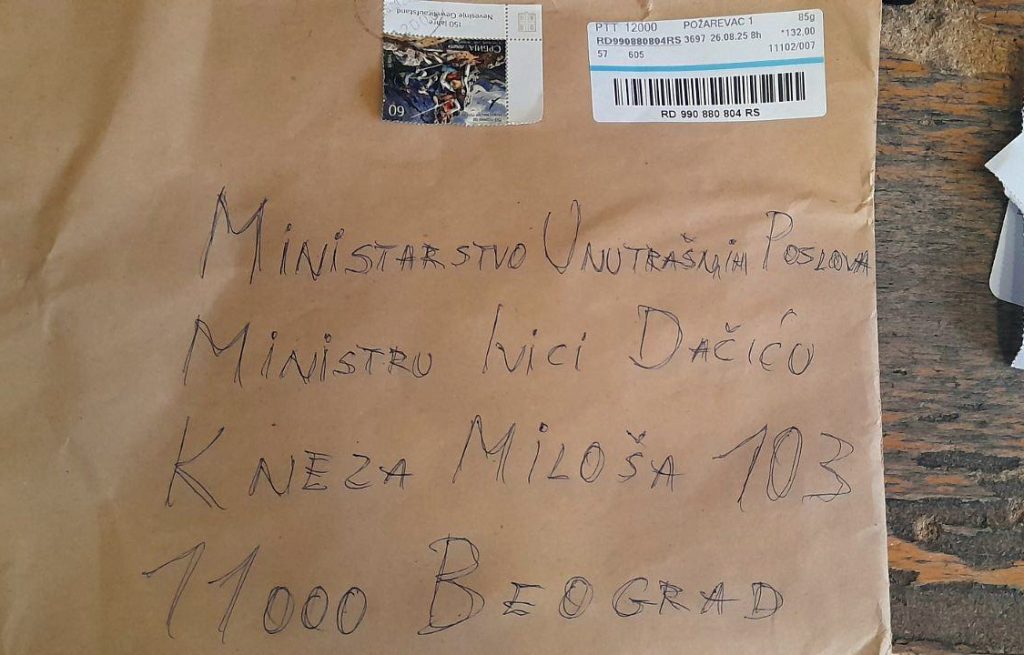 150 Jahre
Nevesinje Gewehraufstand
СРБИЈА
60
PTT 12000 POŽAREVAC 1 85g
RD990880804RS 3697 26.08.25 8h *132.00
57 605 11102/007
RD 990 880 804 RS
MINISTARSTVO UNUTRAŠNJIH POSLOVA
MINISTRU IVICI DAČIĆU
KNEZA MILOŠA 103
11000 BEOGRAD